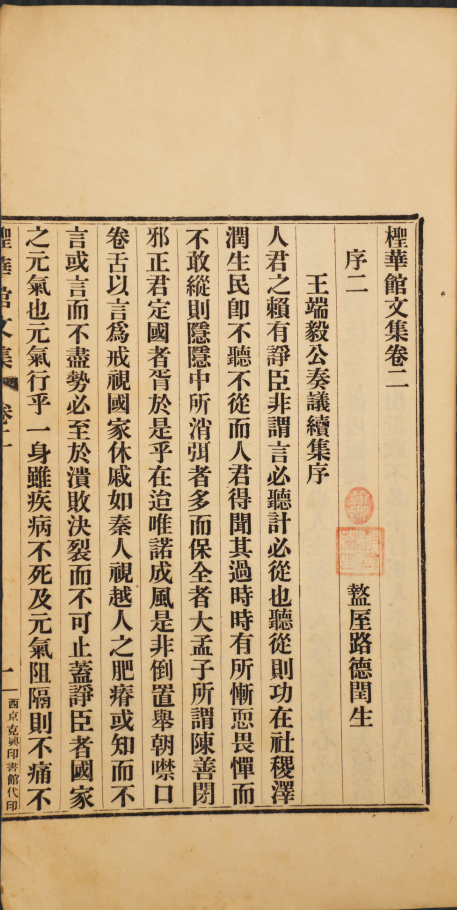 檉華館文集卷二
序二
盩厔路德閏生
王端毅公奏議續集序
人君之賴有諍臣非謂言必聽計必從也聽從則功在社稷澤
潤生民卽不聽不從而人君得聞其過時時有所慚恧畏憚而
不敢縱則隱隱中所消弭者多而保全者大孟子所謂陳善閉
邪正君定國者胥於是乎在迨唯諾成風是非倒置舉朝噤口
卷舌以言爲戒視國家休戚如秦人視越人之肥瘠或知而不
言或言而不盡勢必至於潰敗決裂而不可止蓋諍臣者國家
之元氣也元氣行乎一身雖疾病不死及元氣阻隔則不痛不
檉華館文集 卷二 一 西京克興印書館代印